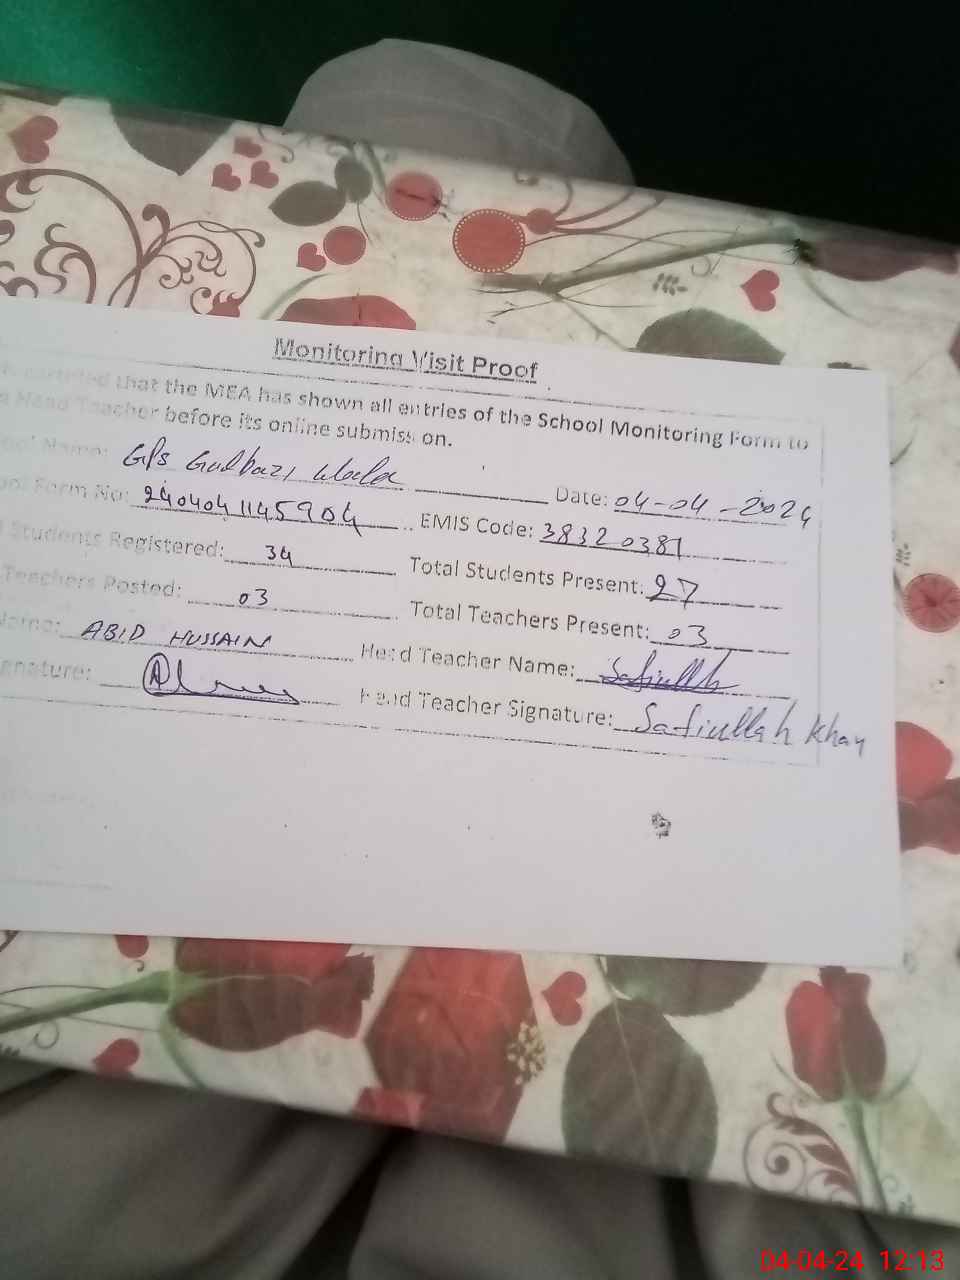 Monitoring Visit Proof
that the MEA has shown all entries of the School Monitoring Form to
Head Teacher before its online submission.
Name: G/s Gulbazi Wala Date: 04-04-2024
Form No: 240404 1145904 EMIS Code: 38320381
Students Registered: 34 Total Students Present: 27
Teachers Posted: 03 Total Teachers Present: 03
Name: ABID HUSSAIN Head Teacher Name: Safiullah
gnature: Head Teacher Signature: Safiullah Khan
04-04-24 12:13